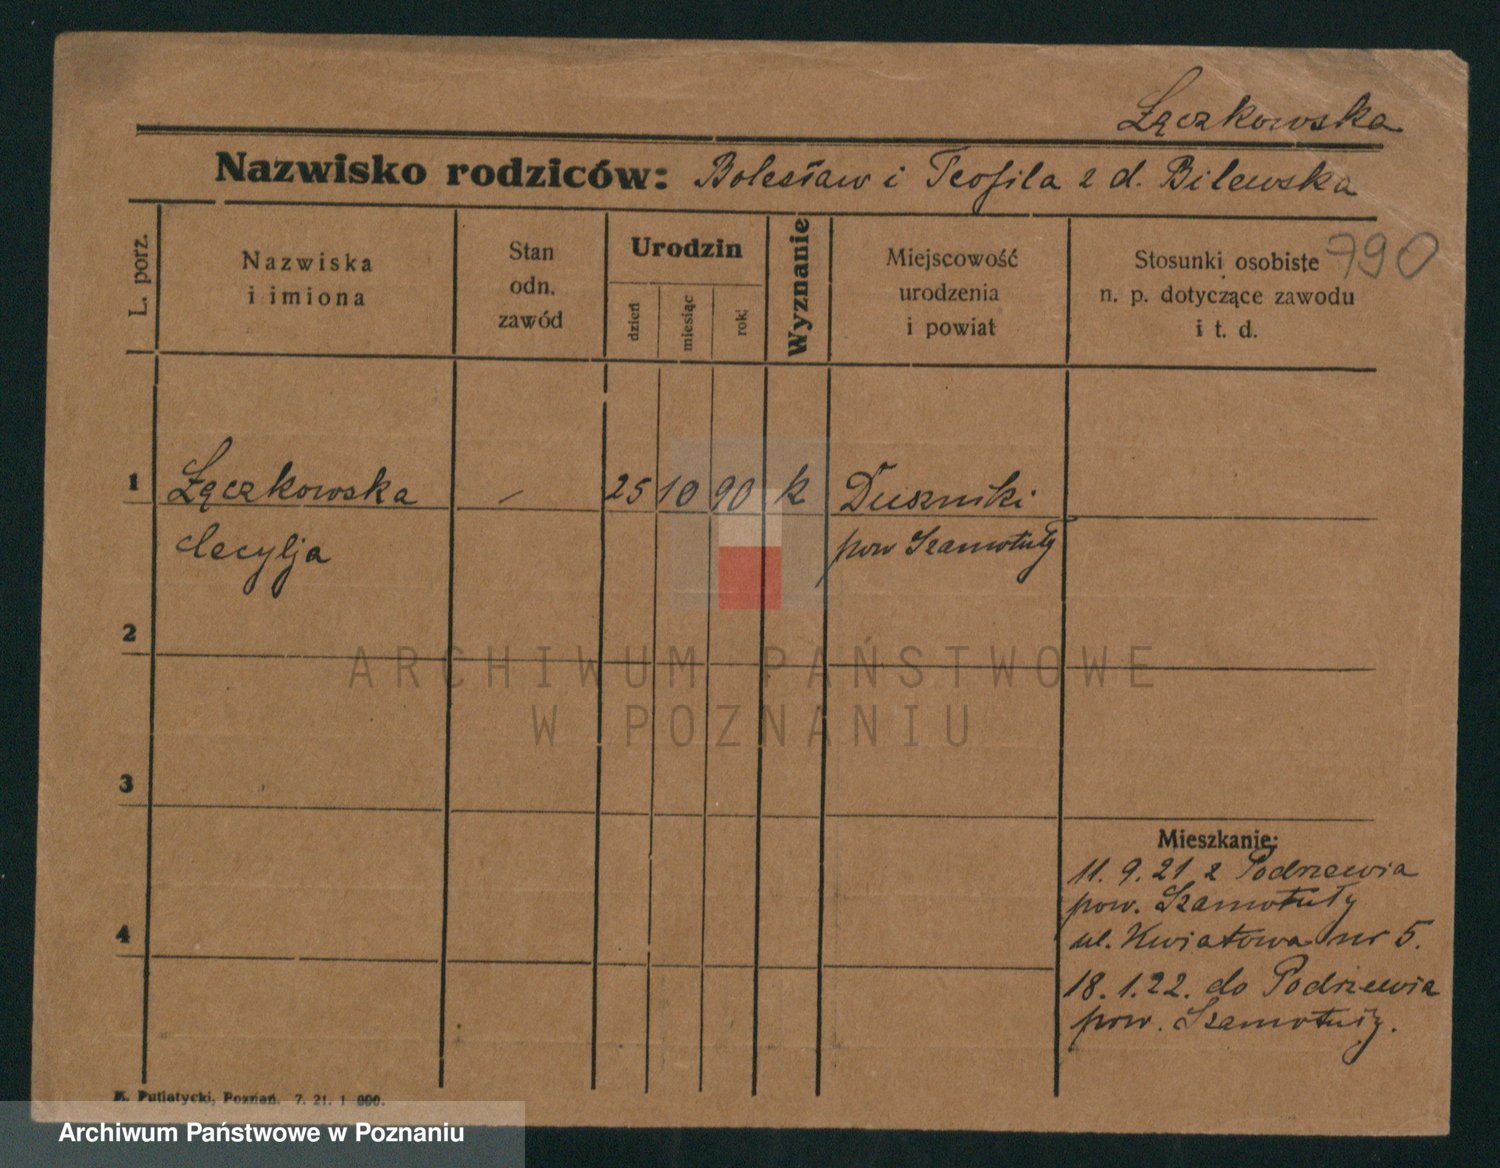 Łączkowska
Nazwisko rodziców: Bolesław i Teofila z d. Bilewska
790
L. porz.
Nazwiska
i imiona
Stan
odn.
zawód
Urodzin
dzień
miesiąc
rok
Wyznanie
Miejscowość
urodzenia
i powiat
Stosunki osobiste
n. p. dotyczące zawodu
i t. d.
1 Łączkowska - 25 10 90 k Duszniki
Cecylja pow Szamotuły
2
ARCHIWUM PAŃSTWOWE
W POZNANIU
3
Mieszkanie:
11. 9. 21 z Podrzewia
pow. Szamotuły
ul. Kwiatowa nr 5.
4
18. 1. 22. do Podrzewia
pow. Szamotuły.
K. Putiatycki, Poznań. 7. 21. 1 000.
Archiwum Państwowe w Poznaniu